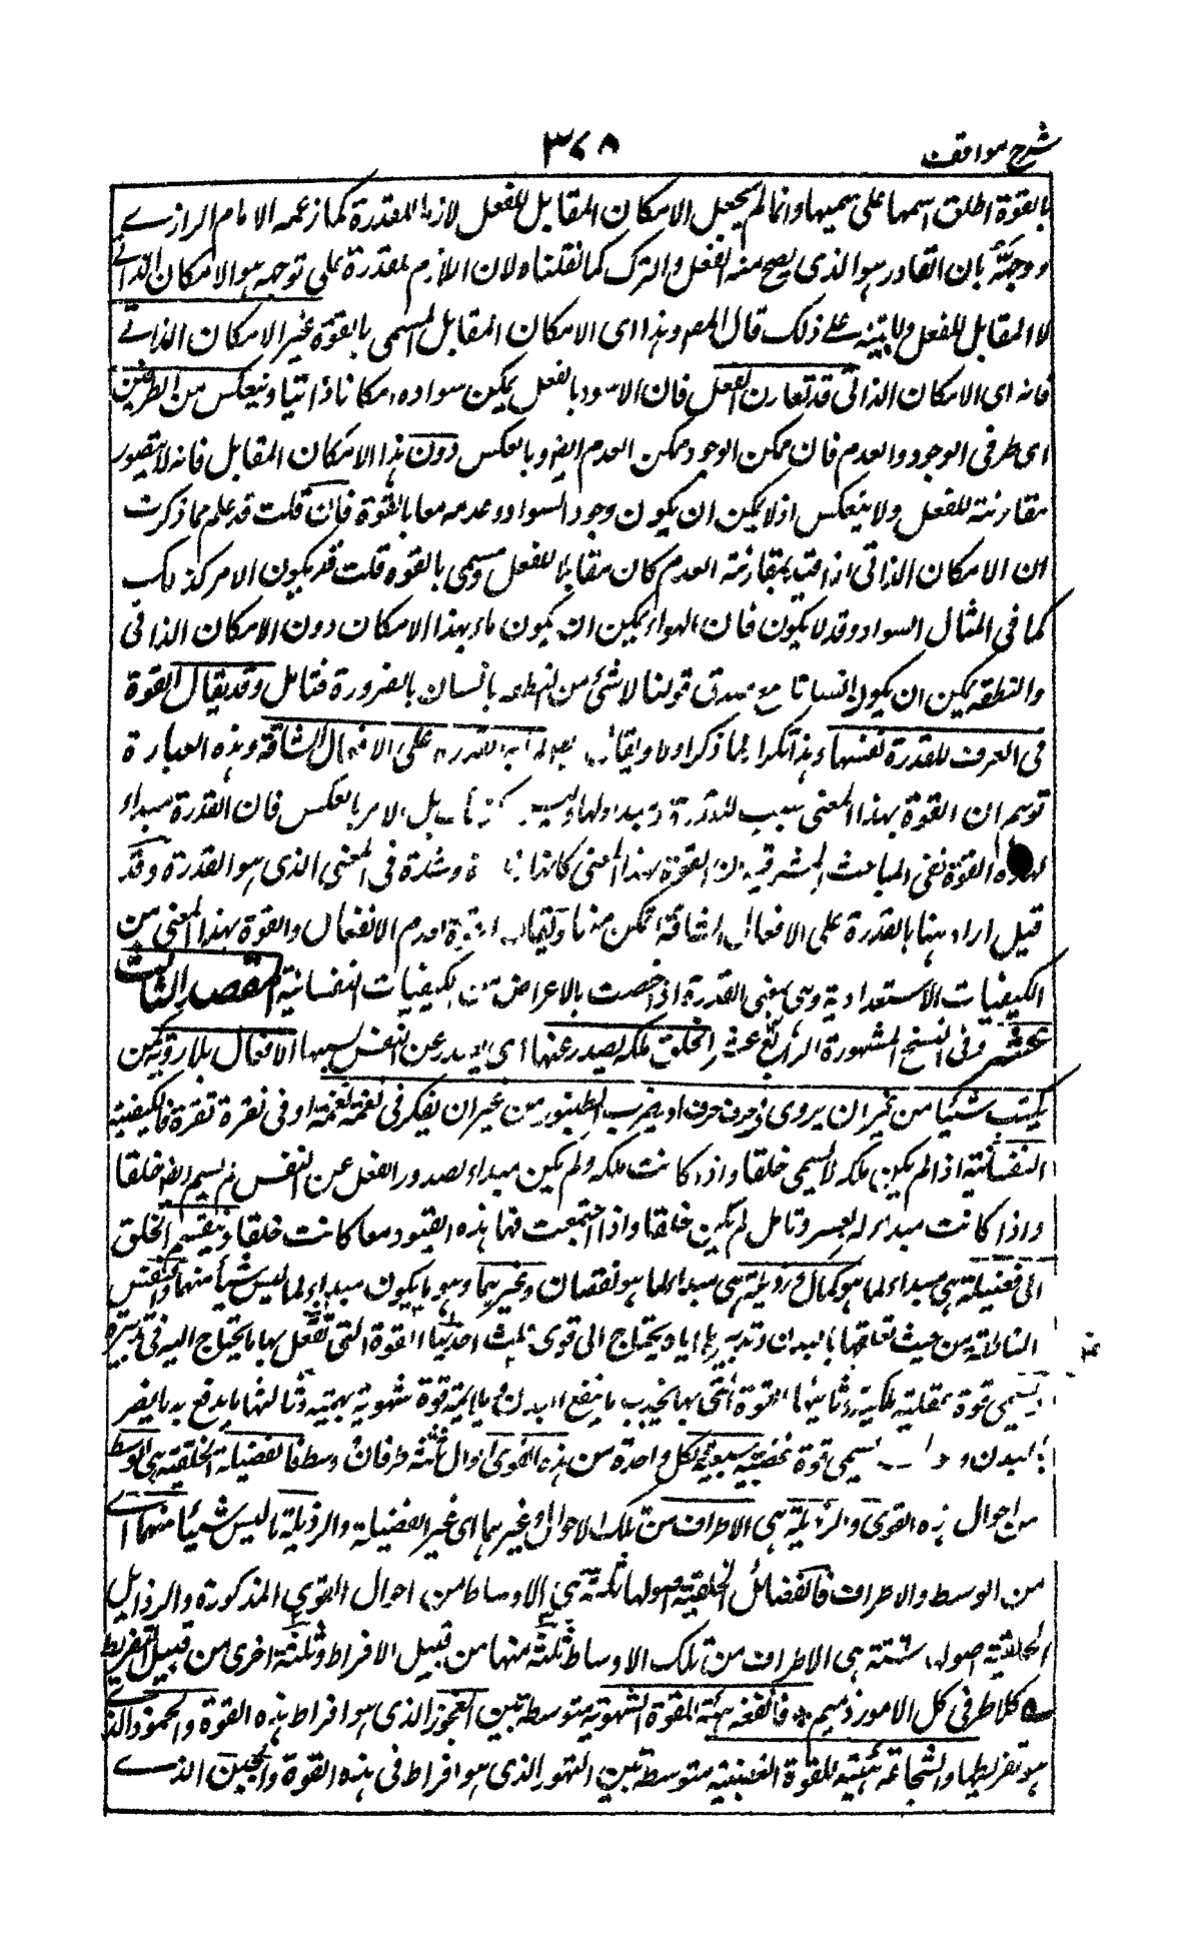 شرح مواقف
٣٧٨
بالقوة اطلق اسمها على مسميها وانما لم يجعل الامكان المقابل للفعل لازما للقدرة كما زعمه الامام الرازے
ووجهه بان القادر هو الذى يصح منه الفعل والترك كما نقلناه لان اللازم للقدرة على توجهه هو الامكان الذاتے
لا المقابل للفعل وللتنبيه علے ذلك قال المصـ وهذا اى الامكان المقابل المسمى بالقوة غير الامكان الذاتے
فانه اى الامكان الذاتى قد تقارن الفعل فان الاسود بالفعل يمكن سواده امكانا ذاتيا وينعكس من الطرفين
اى طرفى الوجود والعدم فان ممكن الوجود ممكن العدم ايضا وبالعكس دون هذا الامكان المقابل فانه لا يتصور
مقارنته للفعل ولا ينعكس اذ لا يمكن ان يكون وجود السواد وعدمه معا بالقوة فان قلت قد علم مما ذكرت
ان الامكان الذاتى اذا قيد بمقارنة العدم كان مقابلا للفعل ومسمى بالقوه قلت قد يكون الامر كذلك
كما فى المثال السواد وقد لا يكون فان الهواء يمكن ان يكون ماء بهذا الامكان دون الامكان الذاتى
والنطفه يمكن ان يكون انسانا مع صدق قولنا لا شئ من النطفه بانسان بالضرورة فتامل وقد يقال القوة
فى العرف للقدرة نفسها وهذا تكرار لما ذكر اولا ويقال على الافعال الشاقة وهذه العبارة
توهم ان القوة بهذا المعنى سبب للقدرة ومبدا لها وليس كذلك بل الامر بالعكس فان القدرة مبداء
لهذه القوة نفى المباحث المشرقية ان القوة بهذا المعنى كانها وشدة فى المعنى الذى هو القدرة وقد
قيل اراد ههنا بالقدرة على الافعال الشاقة التمكن منها ويقال القوة لعدم الانفعال والقوة بهذا المعنى من
الكيفيات الاستعدادية وهى بمعنى القدرة اذا خصت بالاعراض من الكيفيات النفسانية المقصد الثالث
عشر وفى النسخ المشهورة الرابع عشر الخلق ملكه يصدر عنها اى يصدر عن النفس بسببها الافعال بلا روية كمن
يكتب شيئا من غير ان يروى فى حرف حرف او يضرب الطنبور من غير ان يفكر فى نغمة نغمة او فى نقرة نقرة فالكيفية
النفسانية اذا لم يكن ملكه لا يسمى خلقا واذا كانت ملكه ولم يكن مبداء لصدور الفعل عن النفس لم يسم ايضا خلقا
واذا كانت مبداء له بعسر وتامل لم يكن خلقا واذا اجتمعت فيها هذه القيود معا كانت خلقا وينقسم الخلق
الى فضيلة هى مبداء لما هو كمال ورذيلة هى مبداء لما هو نقصان وغيرهما وهو ما يكون مبداء لما ليس شيأ منهما والنفس
الناطقة من حيث تعلقها بالبدن وتدبيرها اياه يحتاج الى قوى ثلث احديها القوة التى تعقل بها ما يحتاج اليه فى تدبيره
ويسمى قوة عقلية ملكية وثانيتها القوة التى بها يجذب ما ينفع البدن ويلايمه قوة شهوية بهيمية وثالثتها ما يدفع به ما يضر
بالبدن يسمى قوة غضبية سبعية لكل واحدة من هذه القوى احوال ثلثة طرفان ووسط فالفضيلة الخلقية هى الوسط
من احوال هذه القوى والرذيلة هى الاطراف من تلك الاحوال وغيرهما اى غير الفضيلة والرذيلة ما ليس شيئا منهما اے
من الوسط والاطراف فالفضائل الخلقية اصولها ثلثة هى الاوساط من احوال القوى المذكورة والرذايل
الخلقية اصولها ستة هى الاطراف من تلك الاوساط ثلثة منها من قبيل الافراط وثلثة اخرى من قبيل التفريط
كلا طرفى كل الامور ذميم فالعفة هيئة للقوة الشهوية متوسطة بين الفجور الذى هو افراط هذه القوة والخمود الذے
هو تفريطها والشجاعة هيئة للقوة الغضبية متوسطة بين التهور الذى هو افراط فى هذه القوة والجبن الذے